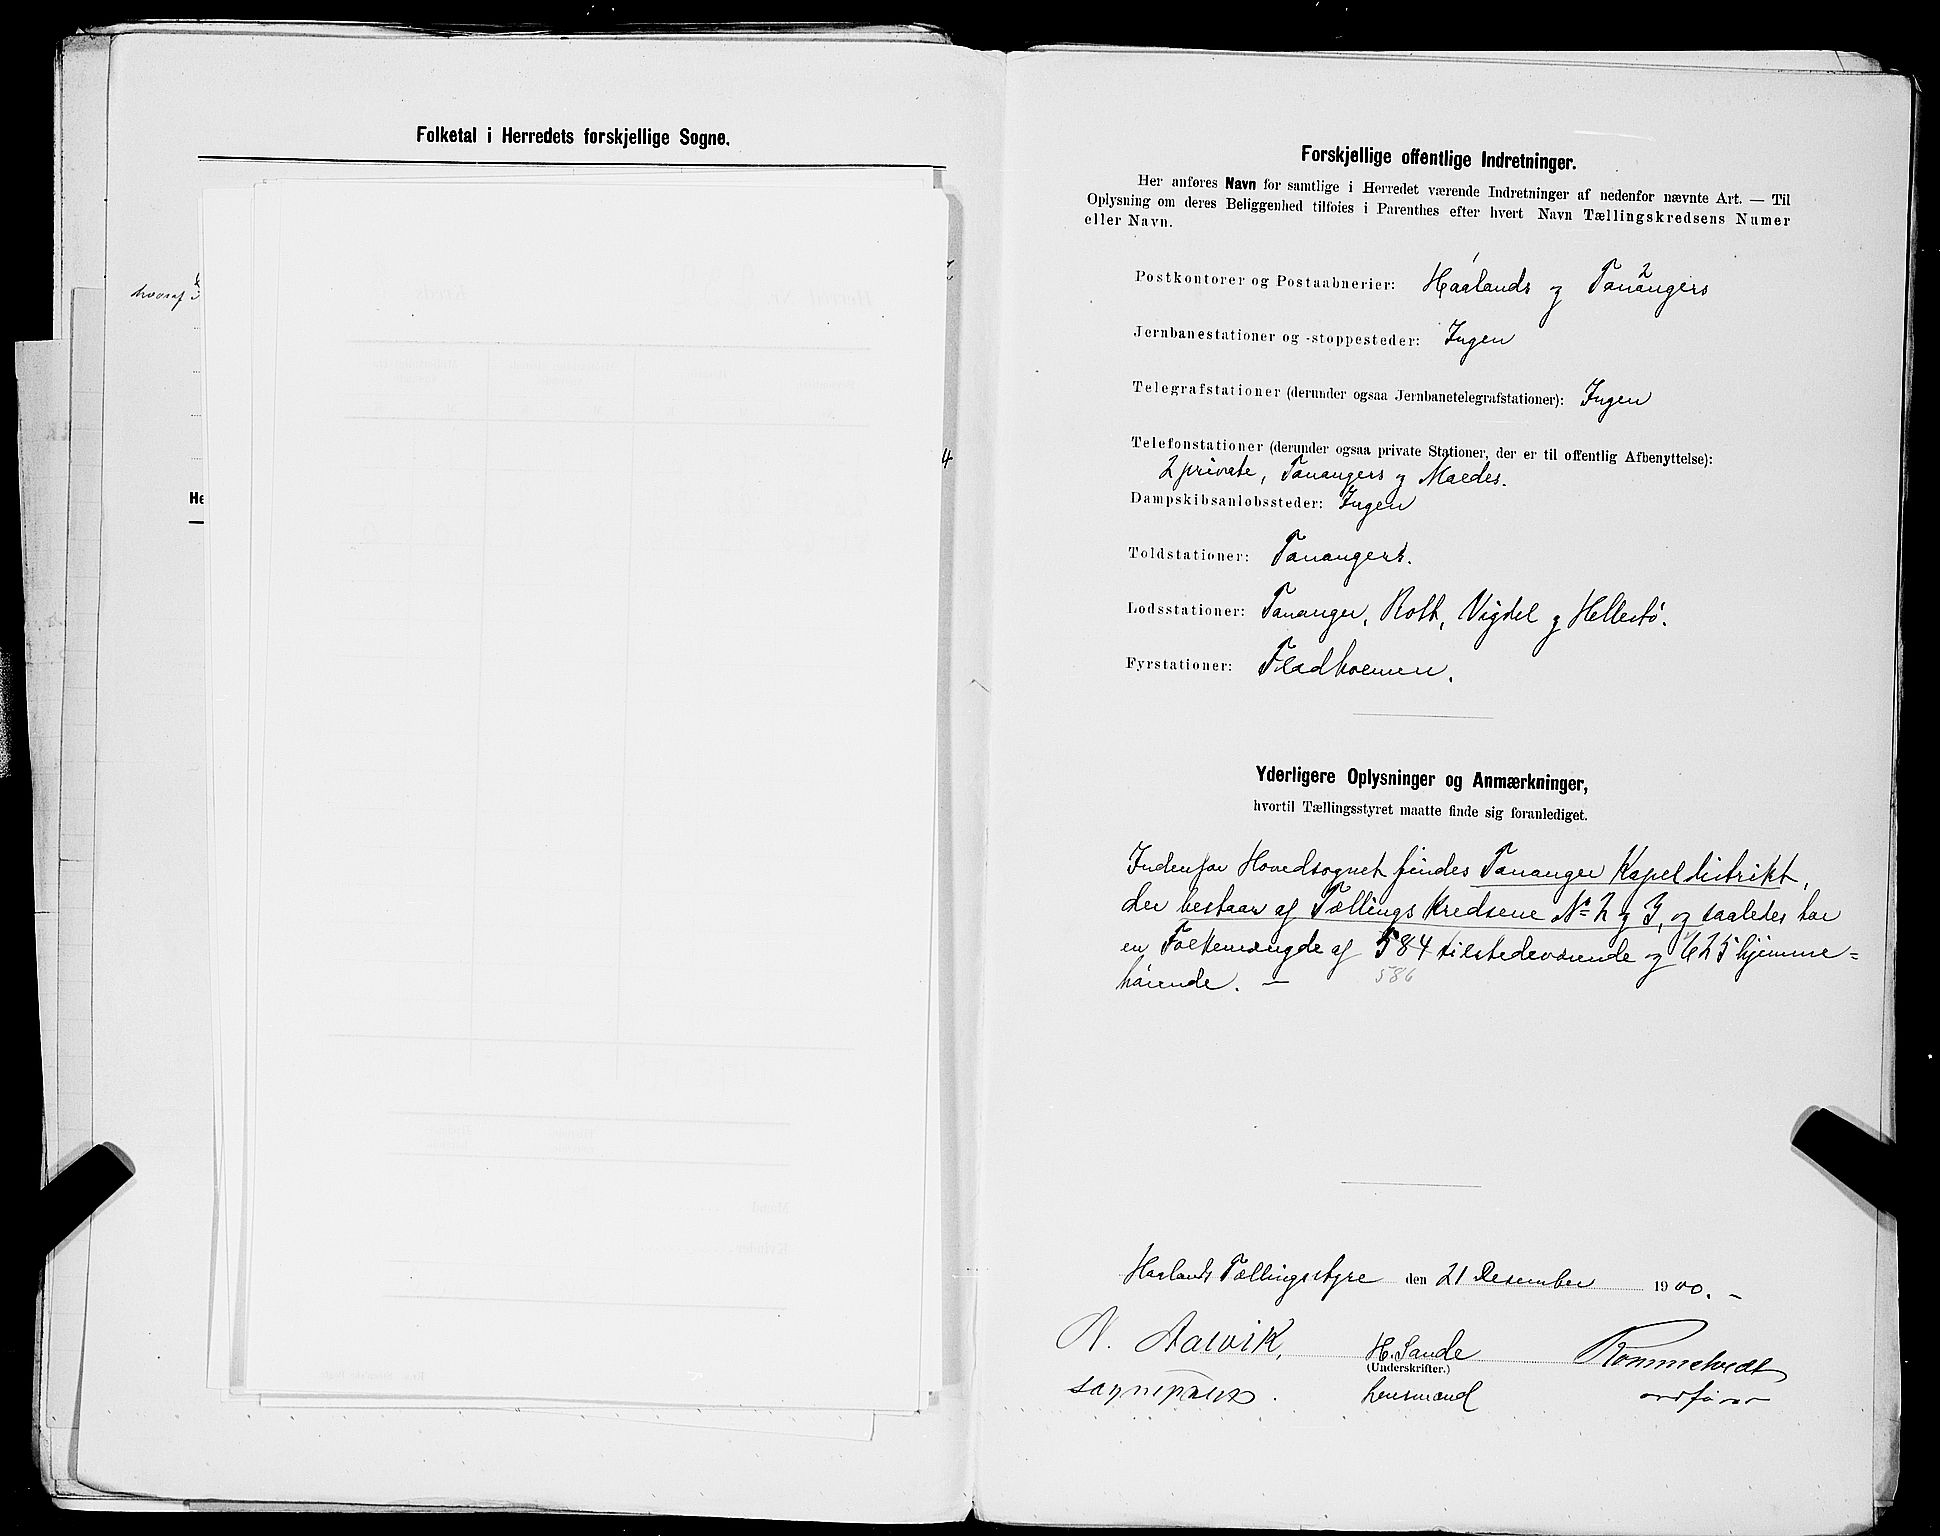 Folketal i Herredets forskjellige Sogne.
hvoraf
He
4
Forskjellige offentlige Indretninger.
Her anføres Navn for samtlige i Herredet værende Indretninger af nedenfor nævnte Art. — Til
Oplysning om deres Beliggenhed tilføies i Parenthes efter hvert Navn Tællingskredsens Numer
eller Navn.
Postkontorer og Postaabnerier: Haalands og Tanangers
2
Jernbanestationer og -stoppesteder: Ingen
Telegrafstationer (derunder ogsaa Jernbanetelegrafstationer): Ingen
Telefonstationer (derunder ogsaa private Stationer, der er til offentlig Afbenyttelse):
2 private, Tanangers og Meledes.
Dampskibsanløbssteder: Ingen
Toldstationer: Tanangers.
Lodsstationer: Tananger, Rott, Vigdel og Hellestø.
Fyrstationer: Fladholmen.
Yderligere Oplysninger og Anmærkninger,
hvortil Tællingsstyret maatte finde sig foranlediget.
Indenfor Hovedsognet findes Tananger Kapeldistrikt,
der bestaar af Tællingskredsene No 2 og 3, og saaledes har
en Folkemængde af 584 tilstedeværende og 625 hjemme=
hørende. —
586
Haalands Tællingsstyre den 21 Desember 1900. -
N. Aalvik, H. Sande Rommetvedt
(Underskrifter.)
sogneprest. Lensmand ordfører